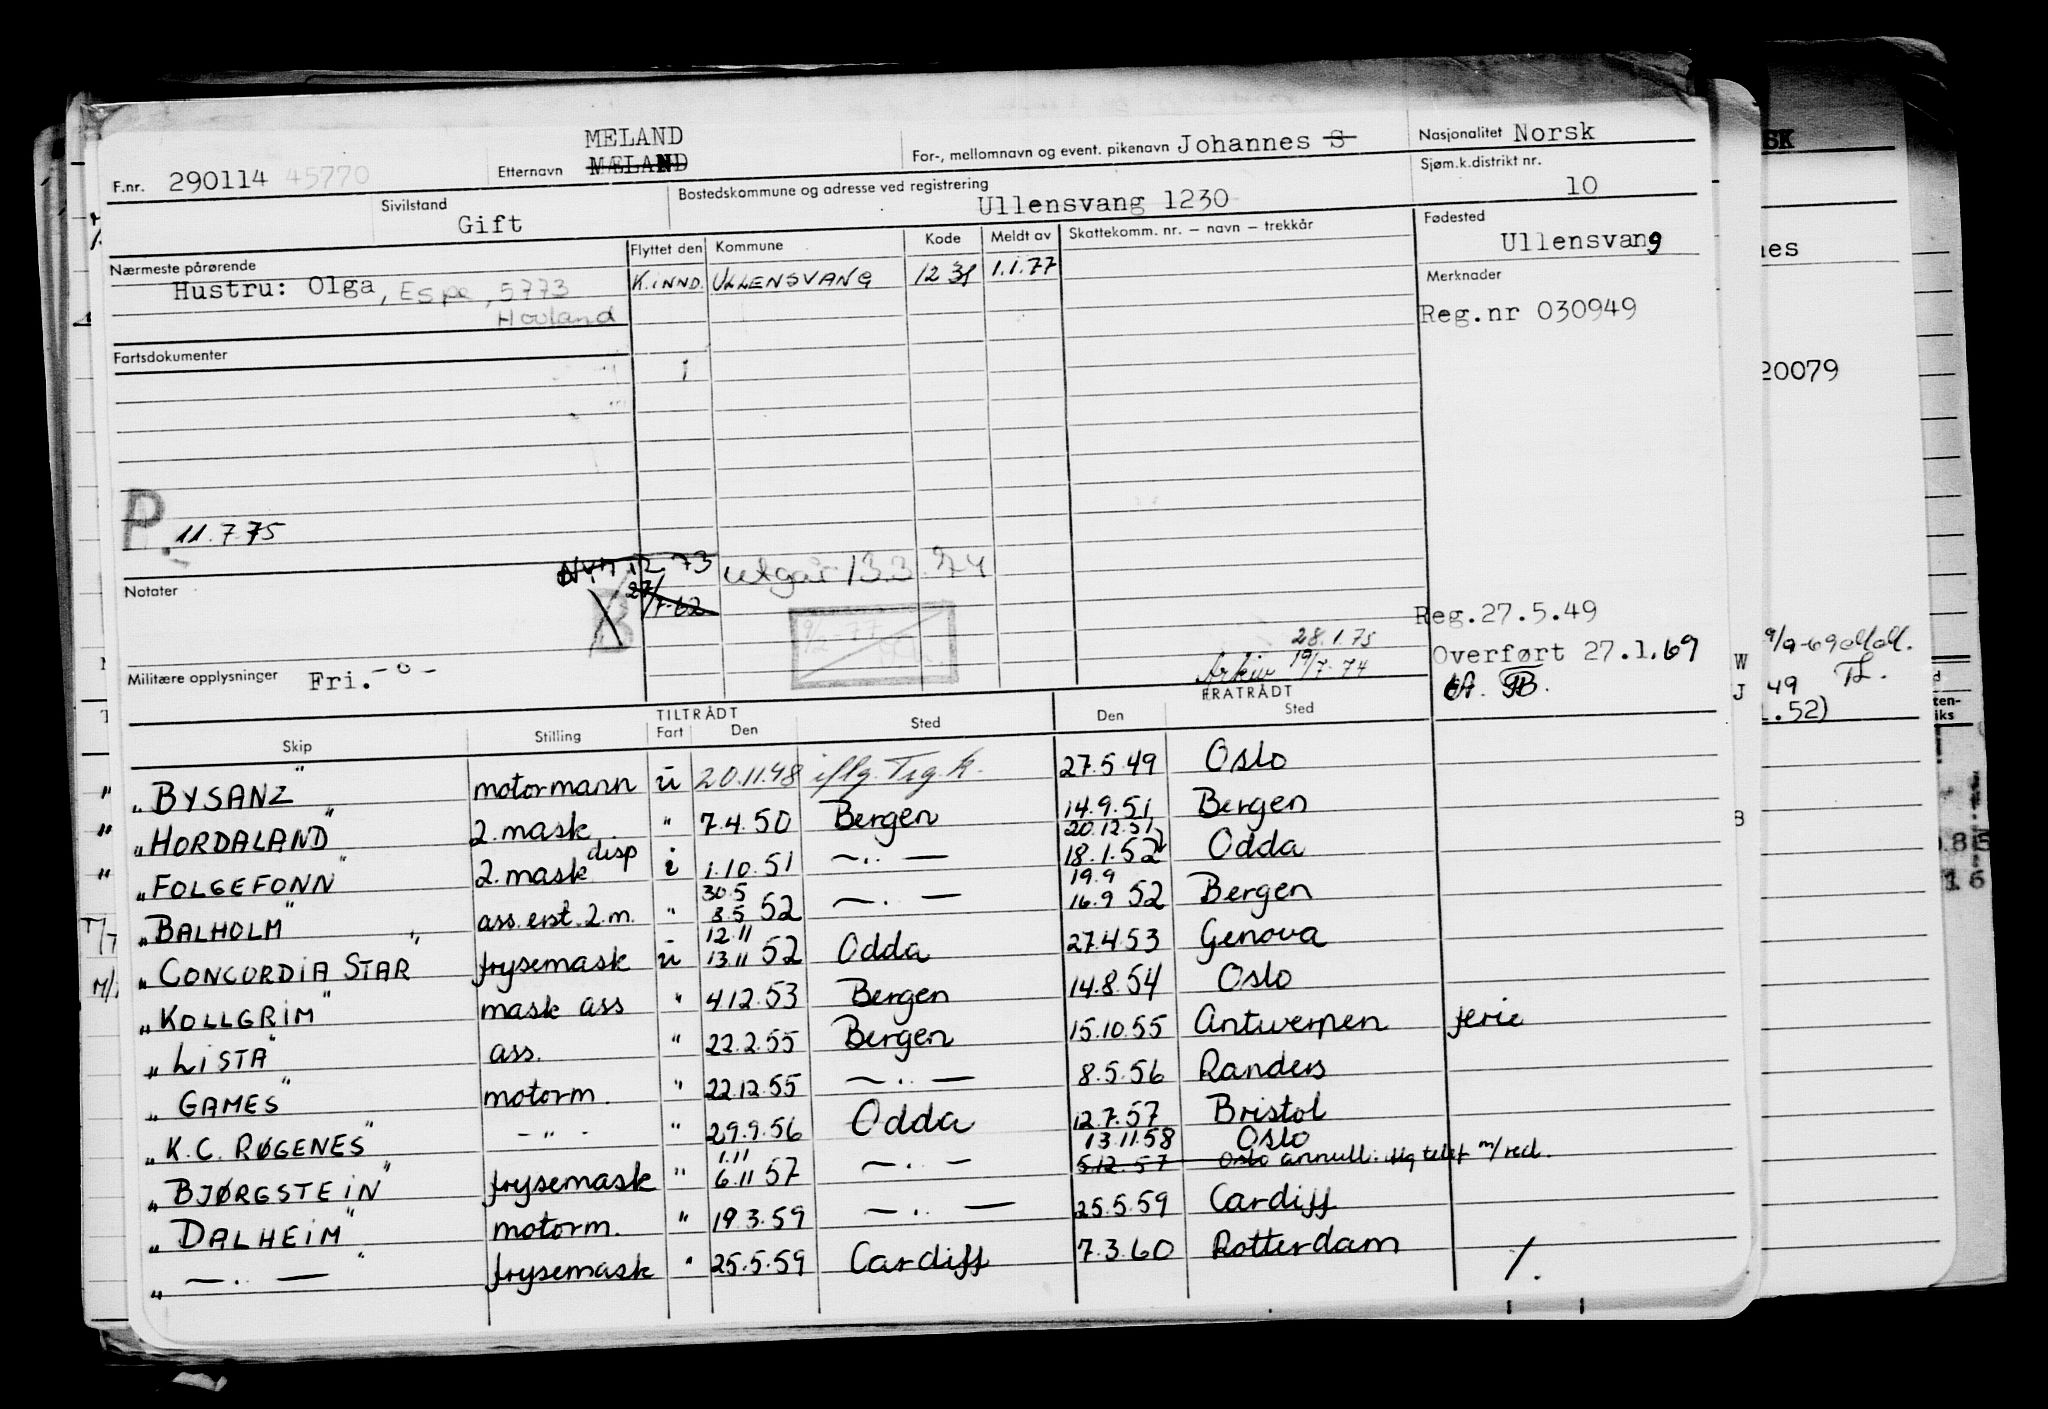 MELAND
F.nr. 290114 45770 Etternavn MÆLAND For-, mellomnavn og event. pikenavn Johannes S Nasjonalitet Norsk
Sivilstand Gift Bostedskommune og adresse ved registrering Ullensvang 1230 Sjøm.k.distrikt nr. 10
Nærmeste pårørende Flyttet den Kommune Kode Meldt av Skattekomm. nr. — navn — trekkår Fødested Ullensvang
Hustru: Olga, Espe, 5773 Hovland K.INND. ULLENSVANG 1231 1.1.77 Merknader
Reg.nr 030949
Fartsdokumenter
P. 11.7.75
12 73 utgår 13.3.74
Notater 27/7-62
B 9/2-77
Reg.27.5.49
28.1.75
Overført 27.1.69
Arkiv 19/7-74
Militære opplysninger Fri. -o-
TILTRÅDT FRATRÅDT
Skip Stilling Fart Den Sted Den Sted
"BYSANZ" motormann u 20.11.48 iflg. Trg.k. 27.5.49 Oslo
"HORDALAND" 2.mask. " 7.4.50 Bergen 14.9.51 Bergen
"FOLGEFONN" 2.mask disp i 1.10.51 —..— 20.12.51 18.1.52 Odda
"BALHOLM" ass. erst. 2.m. " 30.5 3.5 52 —..— 19.9 16.9 52 Bergen
"CONCORDIA STAR" frysemask u 12.11 13.11 52 Odda 27.4.53 Genova
"KOLLGRIM" mask ass " 4.12.53 Bergen 14.8.54 Oslo
"LISTA" ass. " 22.2.55 Bergen 15.10.55 Antwerpen ferie
"GAMES" motorm. " 22.12.55 —..— 8.5.56 Randers
"K.C. RØGENES" -"- " 29.9.56 Odda 12.7.57 Bristol
"BJØRGSTEIN" frysemask " 1.11 6.11 57 —..— 13.11.58 Oslo
5.12.57 Oslo annull. iflg telef m/red.
"DALHEIM" motorm. " 19.3.59 —..— 25.5.59 Cardiff
"—..—" frysemask " 25.5.59 Cardiff 7.3.60 Rotterdam
/.
SK
nes
20079
9/9-69
W
J
49
1.52)
B